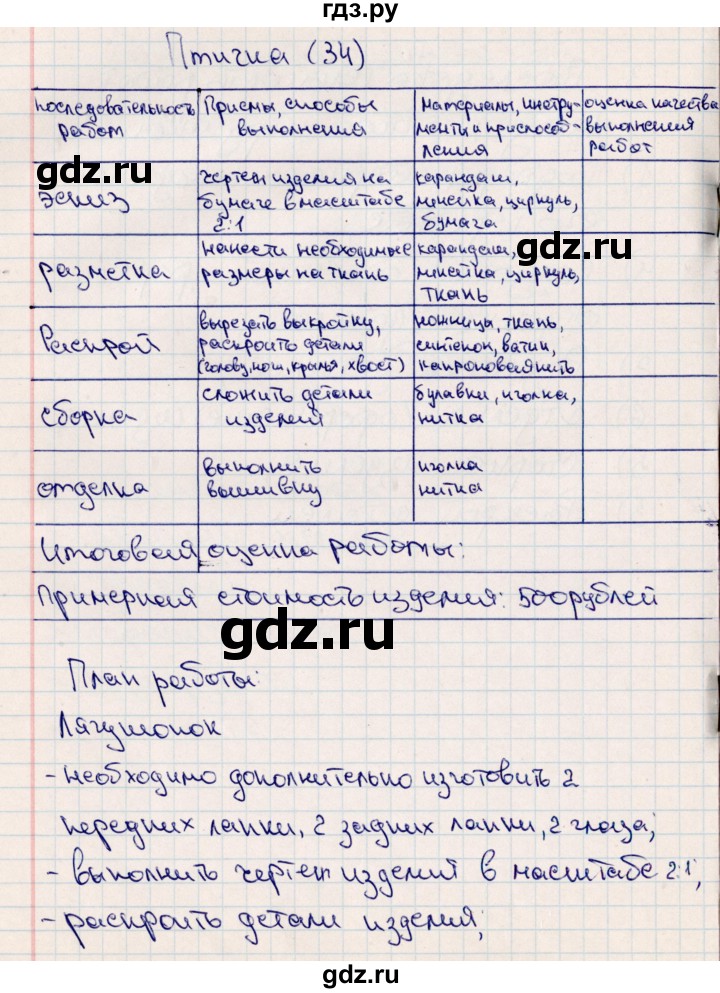 гдз.ру
Птичка (34)
последовательность работ
Приемы, способы выполнения
материалы, инстру-
менты и приспособ-
ления
оценка качества
выполнения
работ
gdz.ru
эскиз
чертеж изделия на
бумаге в масштабе
2:1
карандаш,
линейка, циркуль,
бумага
gdz.ru
разметка
нанести необходимые
размеры на ткань
карандаш,
линейка, циркуль,
ткань
Раскрой
вырезать выкройку,
раскроить детали
(голову, нош, крылья, хвост)
ножницы, ткань,
синтепон, ватин,
капроновая нить
сборка
сложить детали
изделия
булавки, иголка,
нитка
отделка
выполнить
вышивку
иголка
нитка
Итоговая оценка работы:
Примерная стоимость изделия: 500 рублей
gdz.ru
План работы:
Лягушонок
- необходимо дополнительно изготовить 2
передних лапки, 2 задних лапки, 2 глаза;
- выполнить чертеж изделия в масштабе 2:1;
- раскроить детали изделия;
gdz.ru